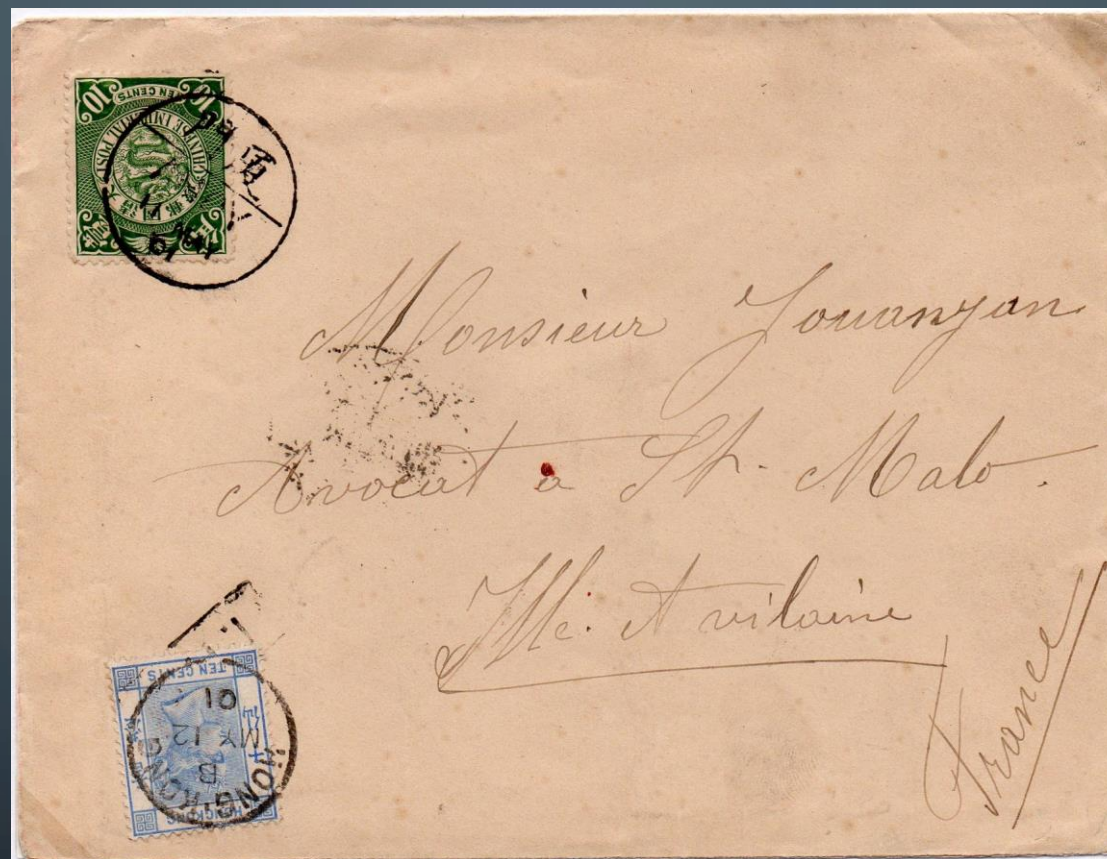 10 TEN CENTS 10
CHINESE IMPERIAL POST
大清國郵政
Monsieur Jouanjan
Avocat à St. Malo.
Ille. et vilaine
France
TEN CENTS
HONGKONG
HONG-KONG
B
MY 12
01